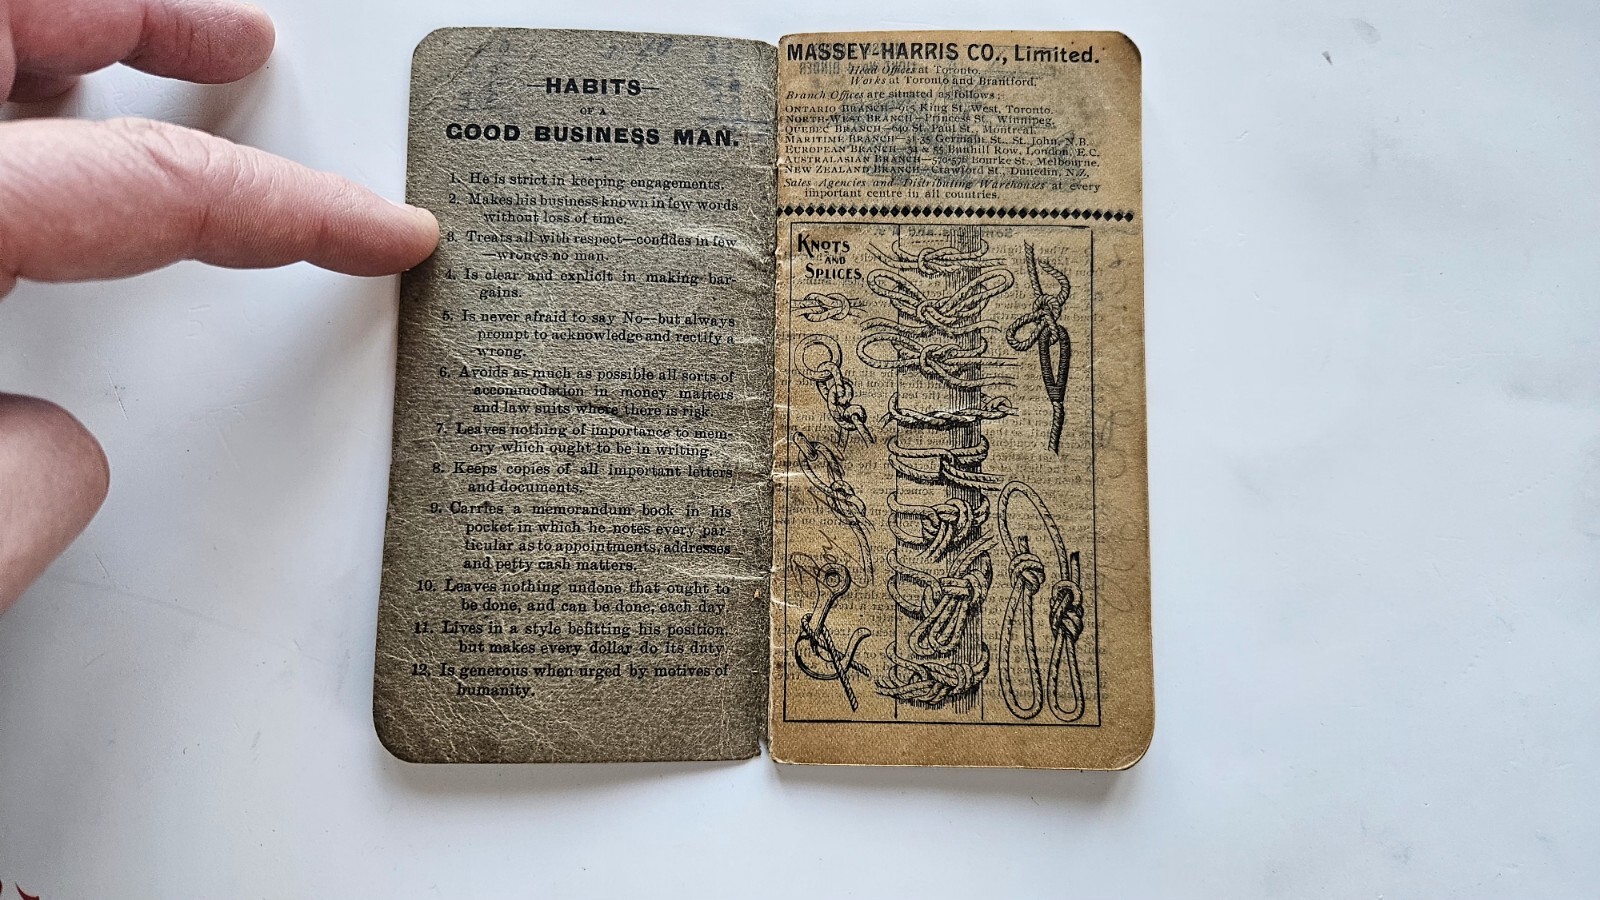 HABITS
OF A
GOOD BUSINESS MAN.
1. He is strict in keeping engagements.
2. Makes his business known in few words
without loss of time.
3. Treats all with respect—confides in few
—wrongs no man.
4. Is clear and explicit in making bar-
gains.
5. Is never afraid to say No—but always
prompt to acknowledge and rectify a
wrong.
6. Avoids as much as possible all sorts of
accommodation in money matters
and law suits where there is risk.
7. Leaves nothing of importance to mem-
ory which ought to be in writing.
8. Keeps copies of all important letters
and documents.
9. Carries a memorandum book in his
pocket in which he notes every par-
ticular as to appointments, addresses
and petty cash matters.
10. Leaves nothing undone that ought to
be done, and can be done, each day.
11. Lives in a style befitting his position,
but makes every dollar do its duty.
12. Is generous when urged by motives of
humanity.
MASSEY-HARRIS CO., Limited.
Head Offices at Toronto.
Works at Toronto and Brantford.
Branch Offices are situated as follows:
ONTARIO BRANCH—915 King St. West, Toronto.
NORTH-WEST BRANCH—Princess St., Winnipeg.
QUEBEC BRANCH—640 St. Paul St., Montreal.
MARITIME BRANCH—Germain St., St. John, N.B.
EUROPEAN BRANCH—54 & 55 Bunhill Row, London, E.C.
AUSTRALASIAN BRANCH—570-578 Bourke St., Melbourne.
NEW ZEALAND BRANCH—Crawford St., Dunedin, N.Z.
Sales Agencies and Distributing Warehouses at every
important centre in all countries.
KNOTS
AND
SPLICES